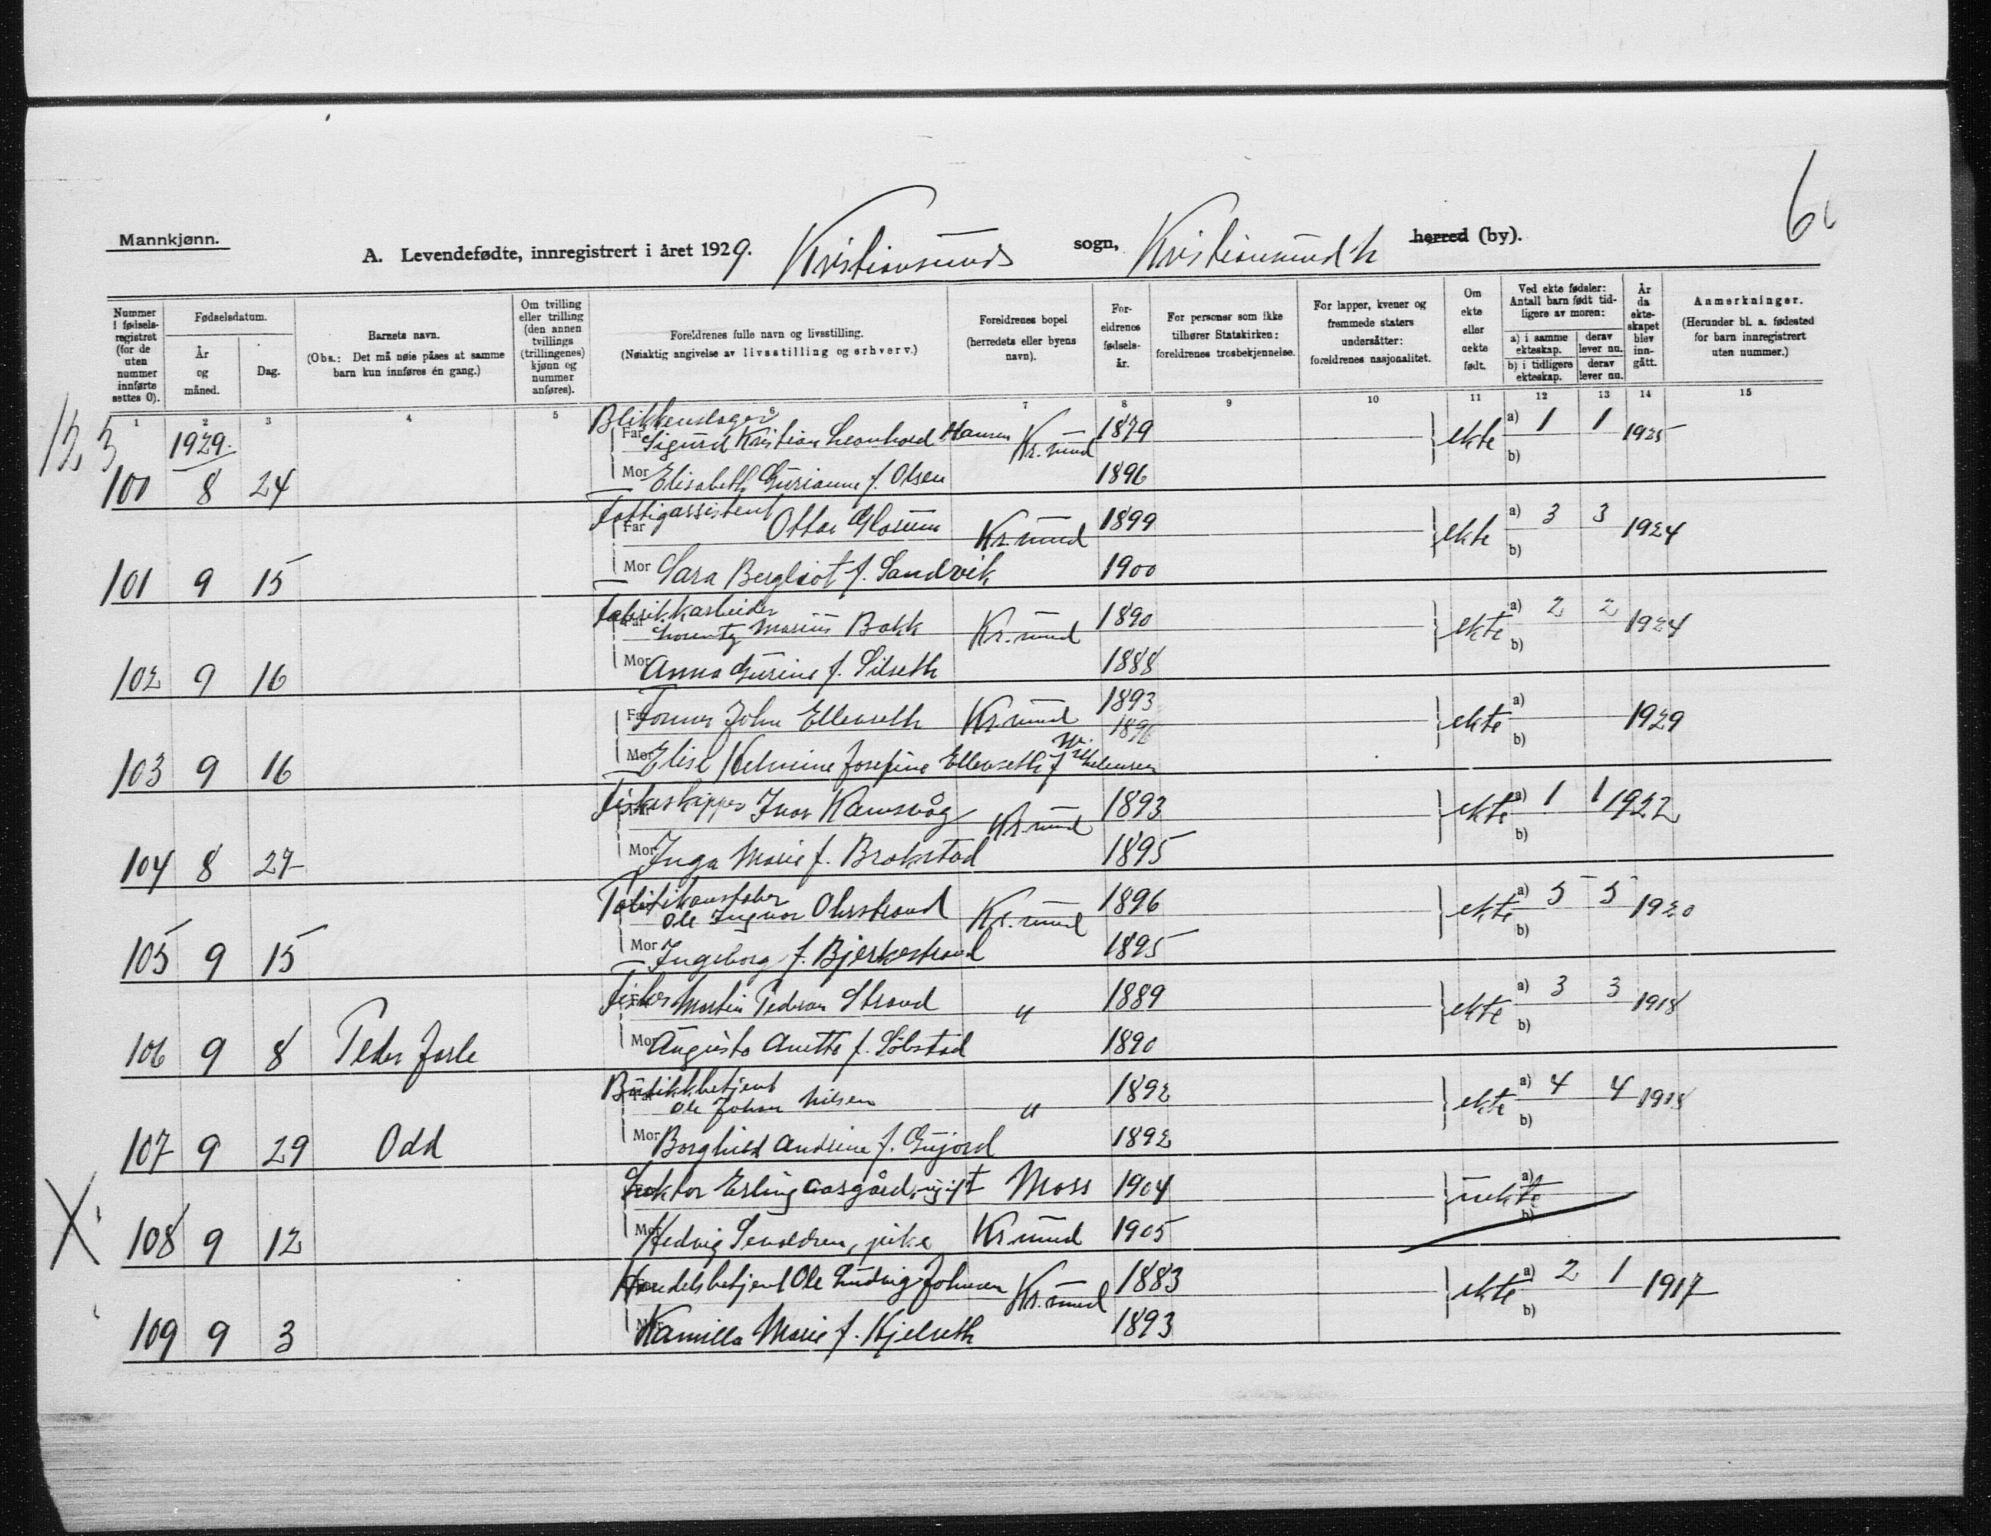 6
Mannkjønn.
A. Levendefødte, innregistrert i året 1929. Kristiansunds sogn, Kristiansund herred (by).
Nummer i fødselsregistret (for de uten nummer innførte settes 0).
Fødselsdatum.
År og måned.
Dag.
Barnets navn.
(Obs.: Det må nøie påses at samme barn kun innføres én gang.)
Om tvilling eller trilling (den annen tvillings (trillingenes) kjønn og nummer anføres).
Foreldrenes fulle navn og livsstilling.
(Nøiaktig angivelse av livsstilling og erhverv.)
Foreldrenes bopel (herredets eller byens navn).
Foreldrenes fødselsår.
For personer som ikke tilhører Statskirken: foreldrenes trosbekjennelse.
For lapper, kvener og fremmede staters undersåtter: foreldrenes nasjonalitet.
Om ekte eller uekte født.
Ved ekte fødsler: Antall barn født tidligere av moren:
a) i samme ekteskap. derav lever nu.
b) i tidligere ekteskap. derav lever nu.
År da ekteskapet blev inngått.
Anmerkninger.
(Herunder bl. a. fødested for barn innregistrert uten nummer.)
1 2 3 4 5 6 7 8 9 10 11 12 13 14 15
1929.
Blikkenslager
Far Sigurd Kristian Leonhard Hansen Kr.sund 1879 ekte a) 1 1 1925
b)
100 8 24 Mor Elisabeth Gurianna f. Olsen 1896
Fattigassistent
Far Ottar Glærum Kr.sund 1899 ekte a) 3 3 1924
b)
101 9 15 Mor Sara Bergliot f. Sandvik 1900
Fabrikkarbeider
Far Lorentz Marius Bakk Kr.sund 1890 ekte a) 2 2 1924
b)
102 9 16 Mor Anna Gurine f. Silseth 1888
Far Tømmer John Ellenseth Kr.sund 1893 ekte a) 1929
1896 b)
103 9 16 Mor Elise Helmine Josefine Ellenseth f. Wilhelmsen
Fiskeskipper Ivar Ramsvåg Kr.sund 1893 ekte a) 1 1 1922
b)
104 8 27 Mor Inga Marie f. Brakstad 1895
Politikonstabel
Ole Ingvar Ohrstrand Kr.sund 1896 ekte a) 5 5 1920
b)
105 9 15 Mor Ingeborg f. Bjerkestrand 1895
Fisker Martin Pederson Strand " 1889 ekte a) 3 3 1918
b)
106 9 8 Peder Jarle Mor Augusta Anette f. Sølstad 1890
Butikkbetjent
Far Ole Johan Nilsen " 1892 ekte a) 4 4 1918
b)
107 9 29 Odd Mor Borghild Andrine f. Gujord 1892
Lektor Erling Aasgård, ugift Moss 1904 uekte a)
b)
X 108 9 12 Mor Hedvig Sevaldsen, pike Kr.sund 1905
Handelsbetjent Ole Ludvig Johnsen Kr.sund 1883 ekte a) 2 1 1917
b)
109 9 3 Mor Kamilla Marie f. Kjelseth 1893